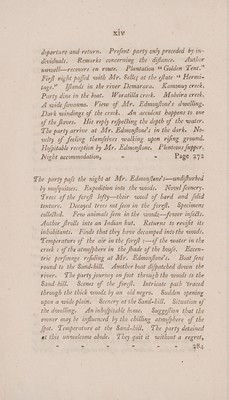 xiv
departure and return. Present party only preceded by in-
dividuals. Remarks concerning the distance. Author
unwell—recovers en route. Plantation "Golden Tent."
First night passed with Mr. Selles at the estate "Hermi-
tage." Islands in the river Demarara. Kamouny creek.
Party dine in the boat. Waratilla creek. Madeira creek.
A wide savanna. View of Mr. Edmonstone's dwelling.
Dark windings of the creek. An accident happens to one
of the slaves. His reply respecting the depth of the water.
The party arrive at Mr. Edmonstone's in the dark. No-
velty of feeling themselves walking upon rising ground.
Hospitable reception by Mr. Edmonstone. Plenteous supper.
Night accommodation, - - Page 272
The party pass the night at Mr. Edmonstone's—undisturbed
by mosquitoes. Expedition into the woods. Novel scenery.
Trees of the forest lofty—their wood of hard and solid
texture. Decayed trees not seen in the forest. Specimens
collected. Few animals seen in the woods—fewer insects.
Author strolls into an Indian hut. Returns to revisit its
inhabitants. Finds that they have decamped into the woods.
Temperature of the air in the forest:—of the water in the
creek:—of the atmosphere in the shade of the house. Eccen-
tric personage residing at Mr. Edmonstone's. Boat sent
round to the Sand-hill. Another boat dispatched down the
river. The party journey on foot through the woods to the
Sand hill. Scenes of the forest. Intricate path traced
through the thick woods by an old negro. Sudden opening
upon a wide plain. Scenery at the Sand-hill. Situation of
the dwelling. An inhospitable home. Suggestion that the
owner may be influenced by the chilling atmosphere of the
spot. Temperature at the Sand-hill. The party detained
at this unwelcome abode. They quit it without a regret,
- - - - - - 284